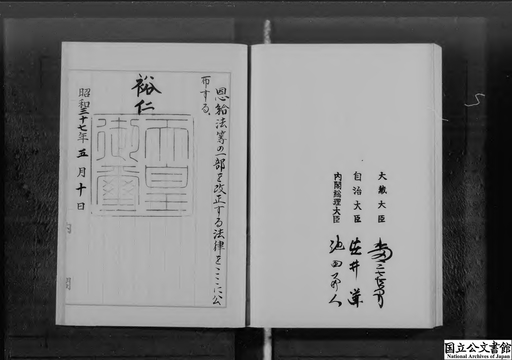 大藏大臣 水田三喜男
自治大臣 安井謙
内閣総理大臣 池田勇人
恩給法等の一部を改正する法律をここに公
布する。
裕仁
天皇
御璽
昭和三十七年五月十日
国立公文書館
National Archives of Japan